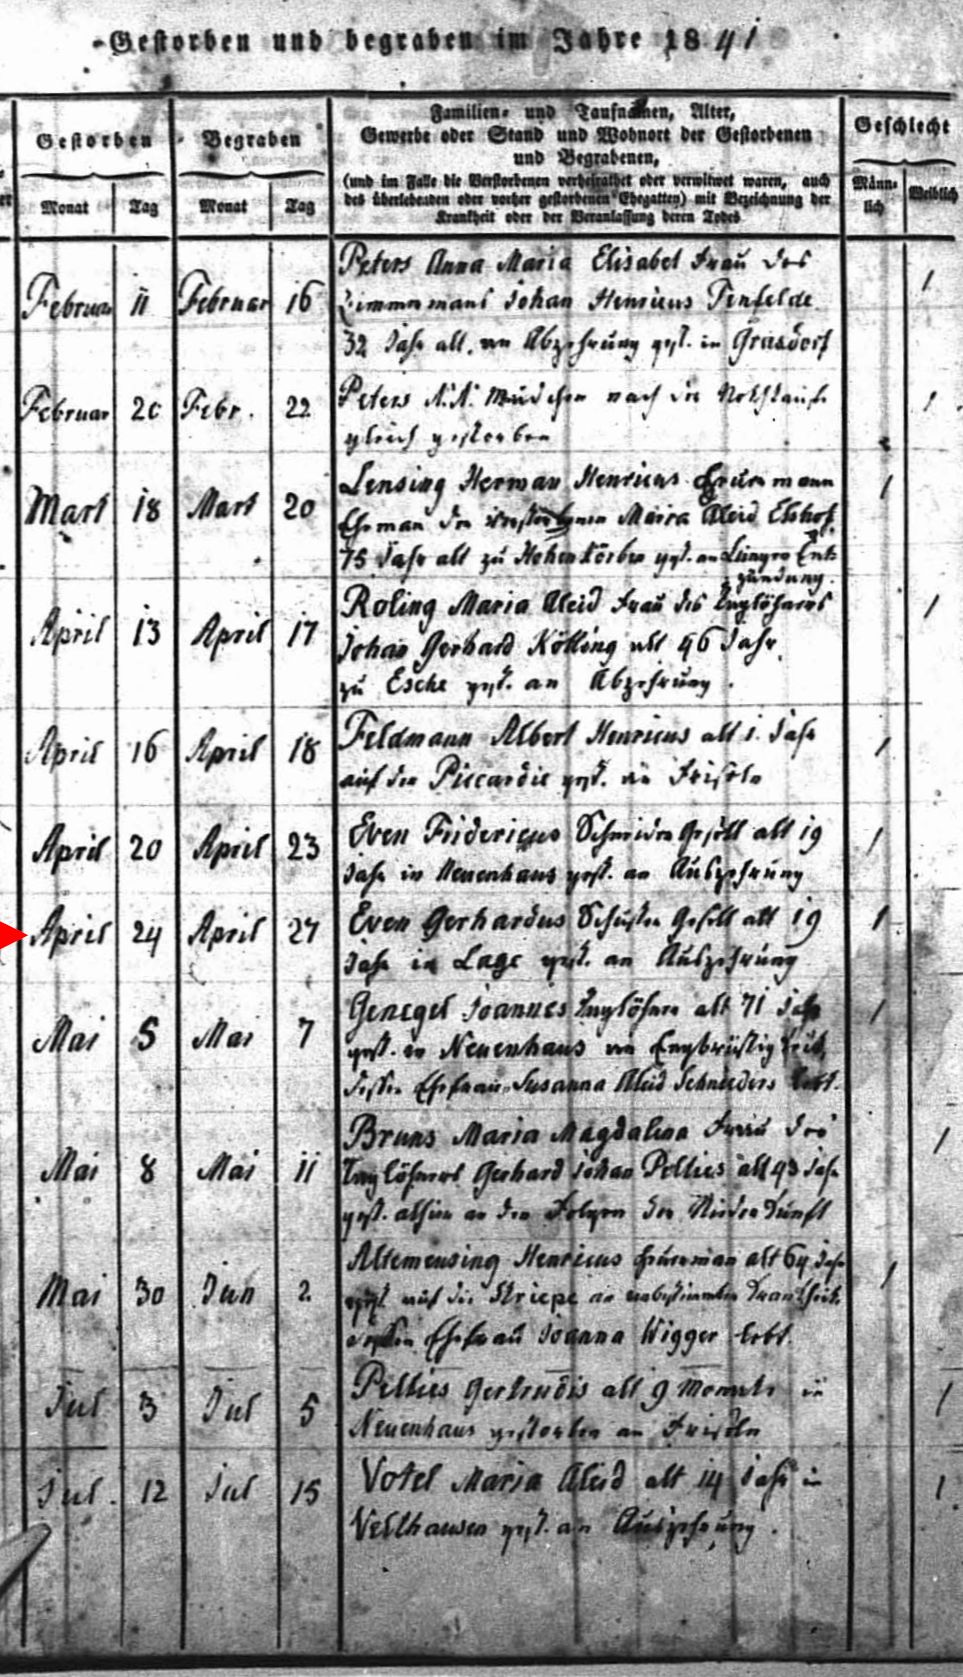 Gestorben und begraben im Jahre 1841
Gestorben
Begraben
Familien- und Taufnahmen, Alter,
Gewerbe oder Stand und Wohnort der Gestorbenen
und Begrabenen,
(und im Falle die Verstorbenen verheirathet oder verwitwet waren, auch
des überlebenden oder vorher gestorbenen Ehegatten) mit Bezeichnung der
Krankheit oder der Veranlassung deren Todes
Geschlecht
Monat Tag Monat Tag
Männ-
lich
Weiblich
Februar 11 Februar 16
Peters Anna Maria Elisabet Frau des
Zimmermans Johan Henricus Tenfelde
32 Jahr alt, an Abzehrung gest. in Grasdorf
1
Februar 20 Febr. 22
Peters N.N. Mädchen nach der Nothtaufe
gleich gestorben
1
Mart 18 Mart 20
Lensing Herman Henricus
Eheman der verstorbenen Maira Aleid Elshof
75 Jahr alt zu Hohenkörben gest. an Lungen Ent-
zündung.
1
April 13 April 17
Roling Maria Aleid Frau des Taglöhners
Johan Gerhard Kölling alt 46 Jahr
zu Esche gest. an Abzehrung.
1
April 16 April 18
Feldmann Albert Henricus alt 1. Jahr
auf der Piccardie gest. an
1
April 20 April 23
Even Fridericus Schneider Gesell alt 19
Jahr in Neuenhaus gest. an Auszehrung
1
April 24 April 27
Even Gerhardus Schuster Gesell alt 19
Jahr in Lage gest. an Auszehrung
1
Mai 5 Mai 7
Genegel Joannes Taglöhner alt 71 Jahr
gest. in Neuenhaus an Engbrüstigkeit,
dessen Ehefrau Susanna Aleid Schnieders lebt.
1
Mai 8 Mai 11
Bruns Maria Magdalena Frau des
Taglöhners Gerhard Johan Pellies alt 43 Jahr
gest. alhier an den Folgen der Niederkunft
1
Mai 30 Jun 2
Altemeusing Henricus alt 64 Jahr
gest. auf der Striepe an unbestimmter Krankheit
dessen Ehefrau Joanna Wigger lebt.
1
Jul 3 Jul 5
Pellies Gertrudis alt 9 Monate in
Neuenhaus gestorben an
1
Jul. 12 Jul 15
Votel Maria Aleid alt 14 Jahr in
Velthausen gest. an Auszehrung.
1.